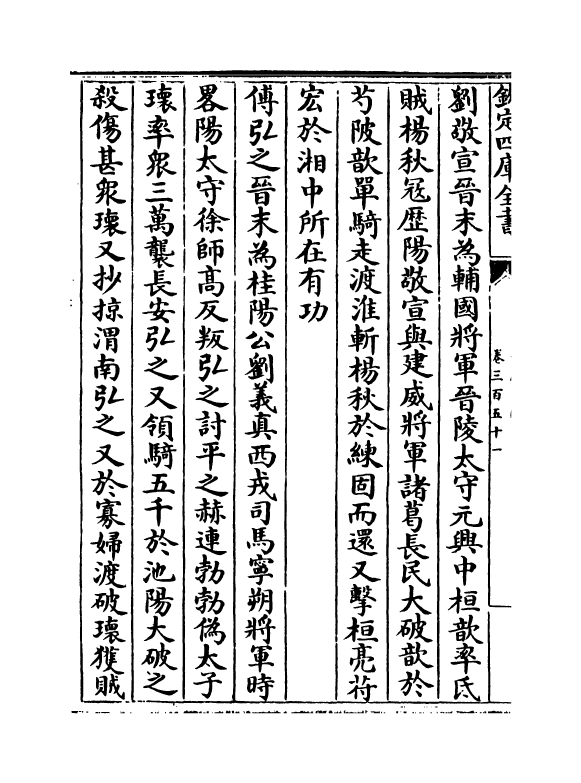 欽定四庫全書
卷三百五十一
劉敬宣晉末為輔國將軍晉陵太守元興中桓歆率氐
賊楊秋寇歷陽敬宣與建威將軍諸葛長民大破歆於
芍陂歆單騎走渡淮斬楊秋於練固而還又擊桓亮苻
宏於湘中所在有功
傅弘之晉末為桂陽公劉義真西戎司馬寧朔將軍時
畧陽太守徐師髙反叛弘之討平之赫連勃勃偽太子
瓌率衆三萬襲長安弘之又領騎五千於池陽大破之
殺傷甚衆瓌又抄掠渭南弘之又於寡婦渡破瓌獲賊